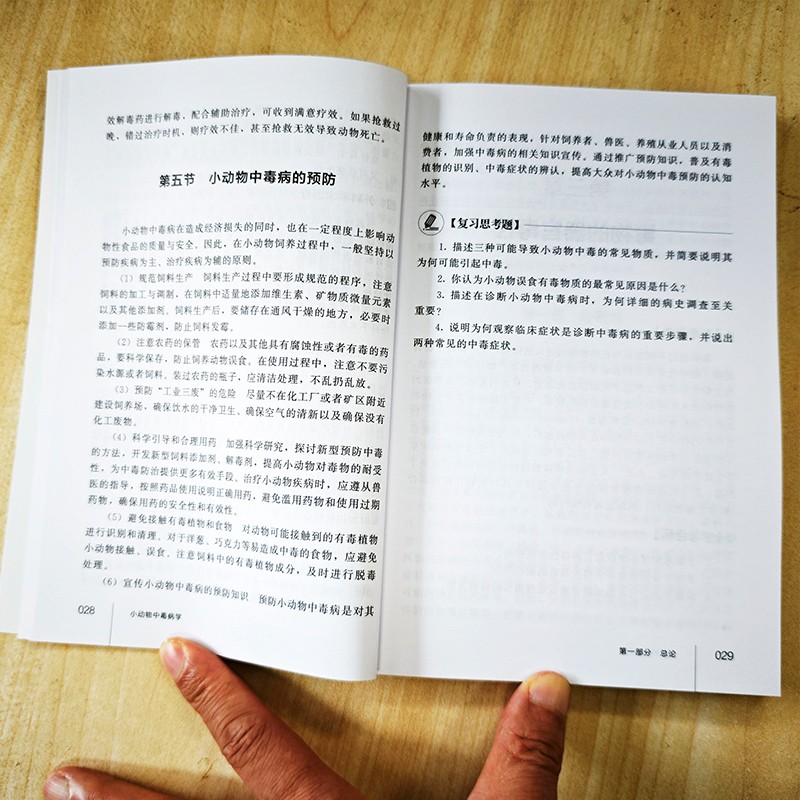 效解毒药进行解毒、配合辅助治疗，可收到满意疗效。如果抢救过
晚，错过治疗时机，则疗效不佳，甚至抢救无效导致动物死亡。
第五节 小动物中毒病的预防
小动物中毒病在造成经济损失的同时，也在一定程度上影响动
物性食品的质量与安全。因此，在小动物饲养过程中，一般坚持以
预防疾病为主、治疗疾病为辅的原则。
（1）规范饲料生产 饲料生产过程中要形成规范的程序，注意
饲料的加工与调制，在饲料中适量地添加维生素、矿物质微量元素
以及其他添加剂。饲料生产后，要储存在通风干燥的地方，必要时
添加一些防霉剂，防止饲料发霉。
（2）注意农药的保管 农药以及其他具有腐蚀性或者有毒的药
品，要科学保存，防止饲养动物误食。在使用过程中，注意不要污
染水源或者饲料。装过农药的瓶子，应清洁处理，不乱扔乱放。
（3）预防“工业三废”的危险 尽量不在化工厂或者矿区附近
建设饲养场，确保饮水的干净卫生、确保空气的清新以及确保没有
化工废物。
（4）科学引导和合理用药 加强科学研究，探讨新型预防中毒
的方法，开发新型饲料添加剂、解毒剂，提高小动物对毒物的耐受
性，为中毒防治提供更多有效手段。治疗小动物疾病时，应遵从兽
医的指导，按照药品使用说明正确用药，避免滥用药物和使用过期
药物，确保用药的安全性和有效性。
（5）避免接触有毒植物和食物 对动物可能接触到的有毒植物
进行识别和清理。对于洋葱、巧克力等易造成中毒的食物，应避免
小动物接触、误食。注意饲料中的有毒植物成分，及时进行脱毒
处理。
（6）宣传小动物中毒病的预防知识 预防小动物中毒病是对其
028 小动物中毒病学
健康和寿命负责的表现，针对饲养者、兽医、养殖从业人员以及消
费者，加强中毒病的相关知识宣传。通过推广预防知识，普及有毒
植物的识别、中毒症状的辨认，提高大众对小动物中毒预防的认知
水平。
【复习思考题】
1. 描述三种可能导致小动物中毒的常见物质，并简要说明其
为何可能引起中毒。
2. 你认为小动物误食有毒物质的最常见原因是什么？
3. 描述在诊断小动物中毒病时，为何详细的病史调查至关
重要？
4. 说明为何观察临床症状是诊断中毒病的重要步骤，并说出
两种常见的中毒症状。
第一部分 总论 029